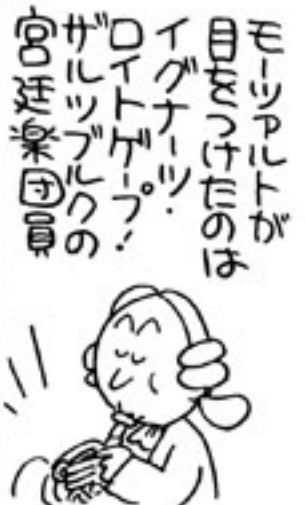 モーツァルトが
目をつけたのは
イグナーツ・
ロイトゲープ!
ザルツブルクの
宮廷楽団員